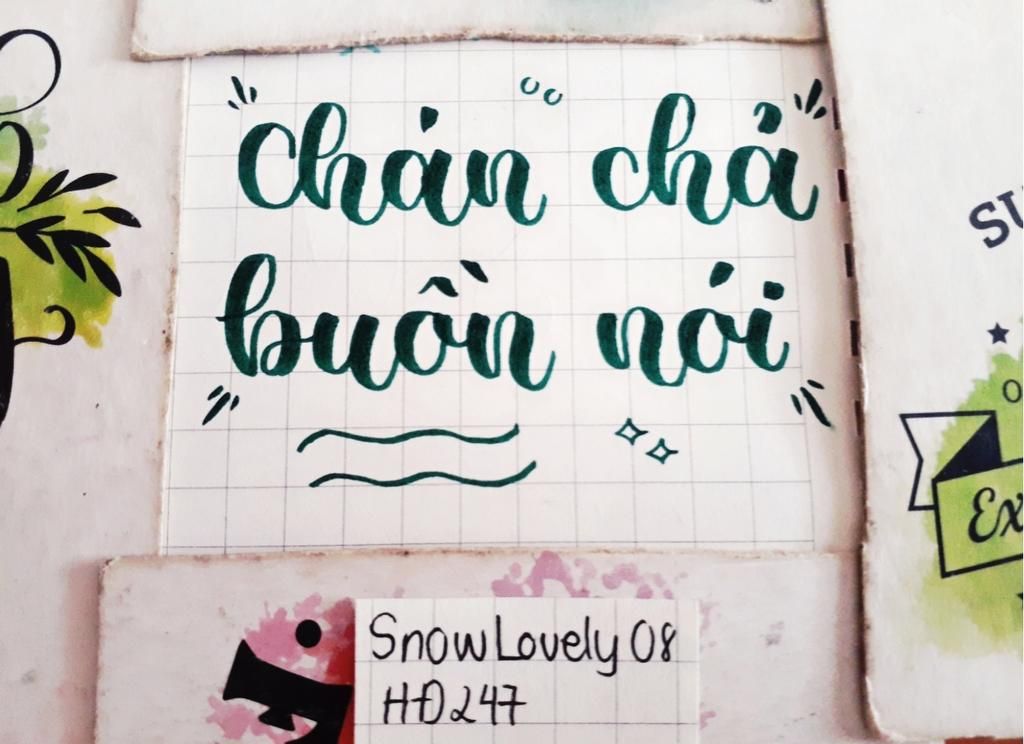 chán chả
buồn nói
Ex
SnowLovely 08
HĐ247